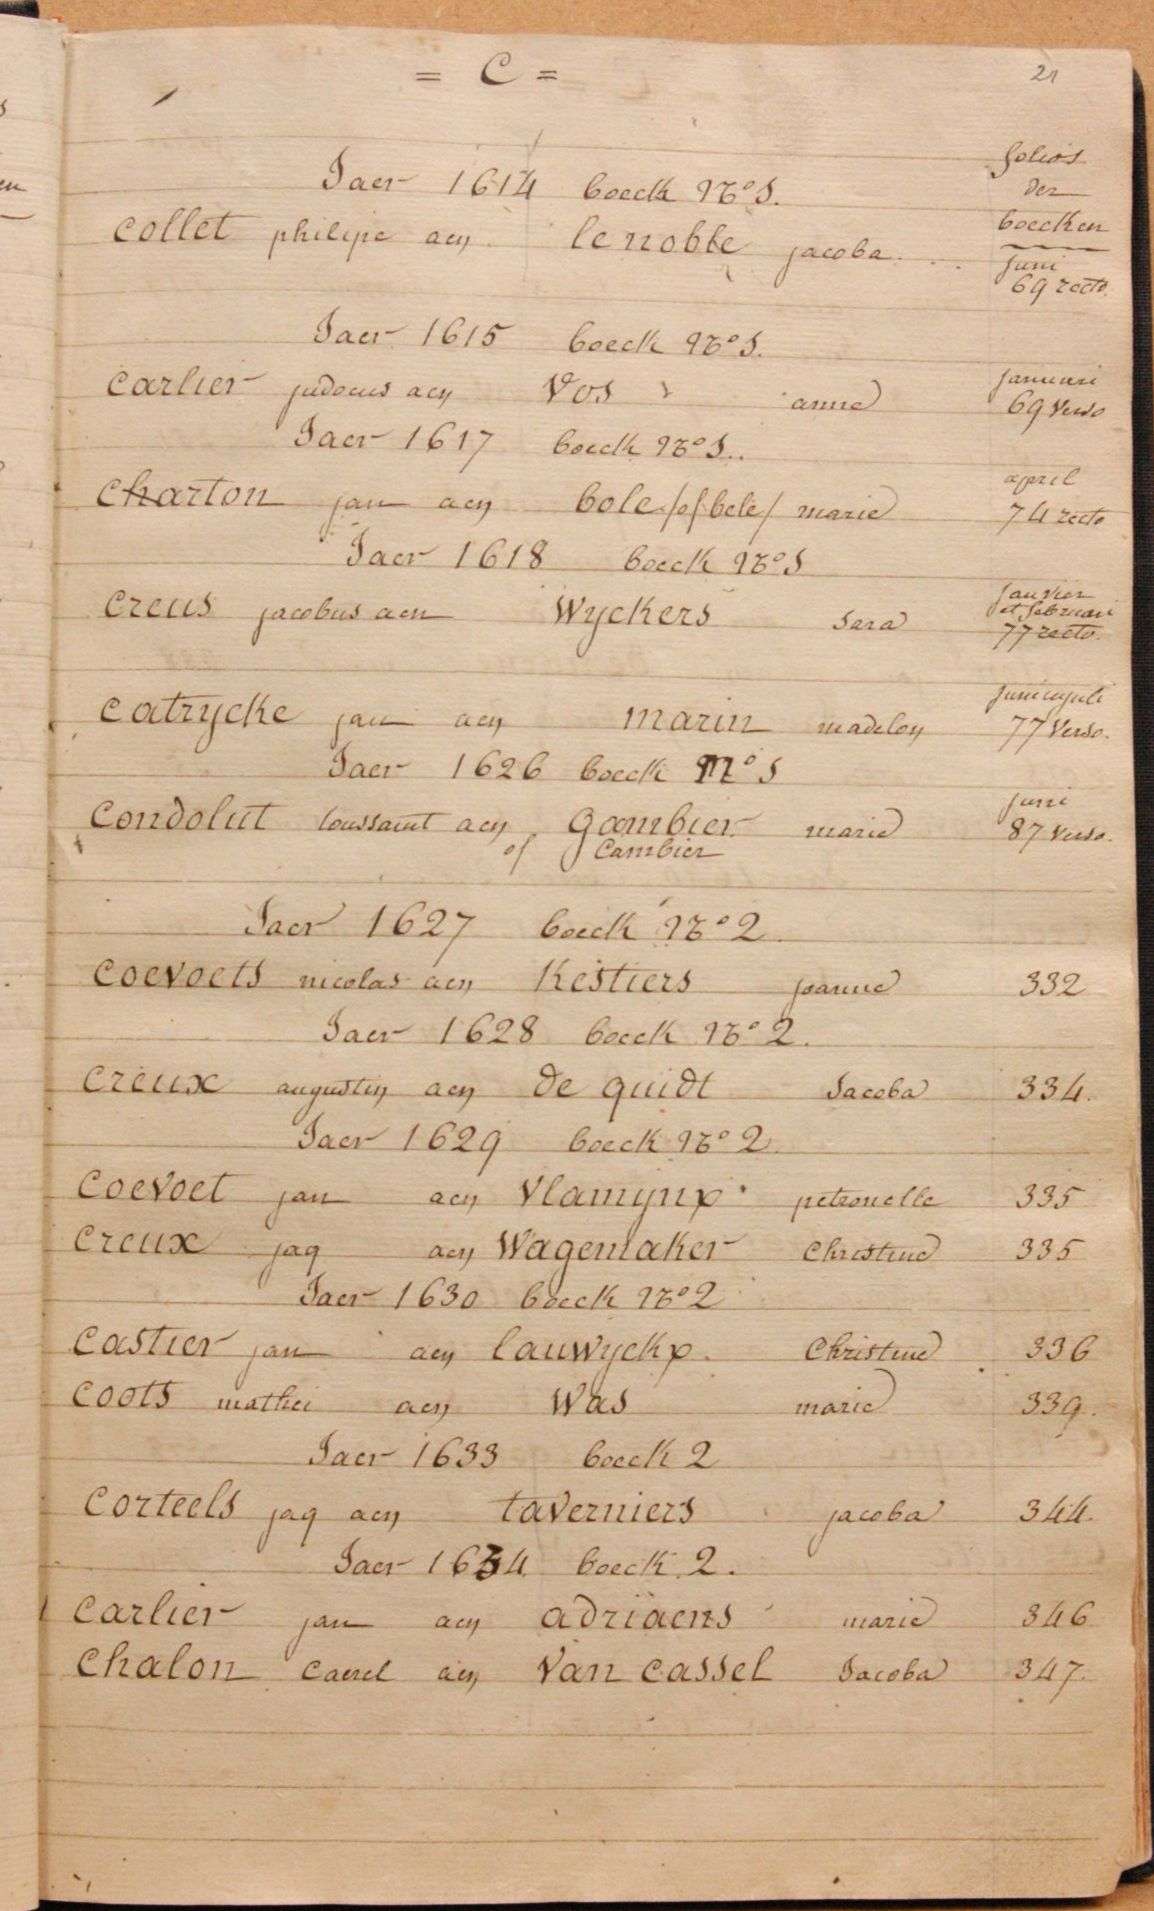 = C =
21
folios
der
boecken
Jaer 1614 boeck No 1.
collet philipe aen lenoble jacoba . . .
juni
69 recto.
Jaer 1615 boeck No 1.
carlier judocus aen Vos anne
januari
69 verso
Jaer 1617 boeck No 1..
charton jan aen bole /of bele/ marie
april
74 recto
Jaer 1618 boeck No 1
creus jacobus aen Wyckers sara
janvier
et februari
77 recto.
catrycke jan aen marin madelon
juni en juli
77 verso.
Jaer 1626 boeck No 1
condolut toussaint aen gambier marie
juni
87 verso.
of Cambier
Jaer 1627 boeck No 2
coevoets nicolas aen Kestiers joanne 332
Jaer 1628 boeck No 2.
creux augustin aen de quidt Jacoba 334.
Jaer 1629 boeck No 2.
coevoet jan aen Vlamynx petronelle 335
creux jaq aen Wagemaker Christine 335
Jaer 1630 boeck No 2
castier jan aen lauwyckx. Christine 336
coots mathei aen Was marie 339.
Jaer 1633 boeck 2
corteels jaq aen taverniers jacoba 344.
Jaer 1634 boeck 2.
carlier jan aen adriaens marie 346
chalon Caerel aen Van cassel Jacoba 347.